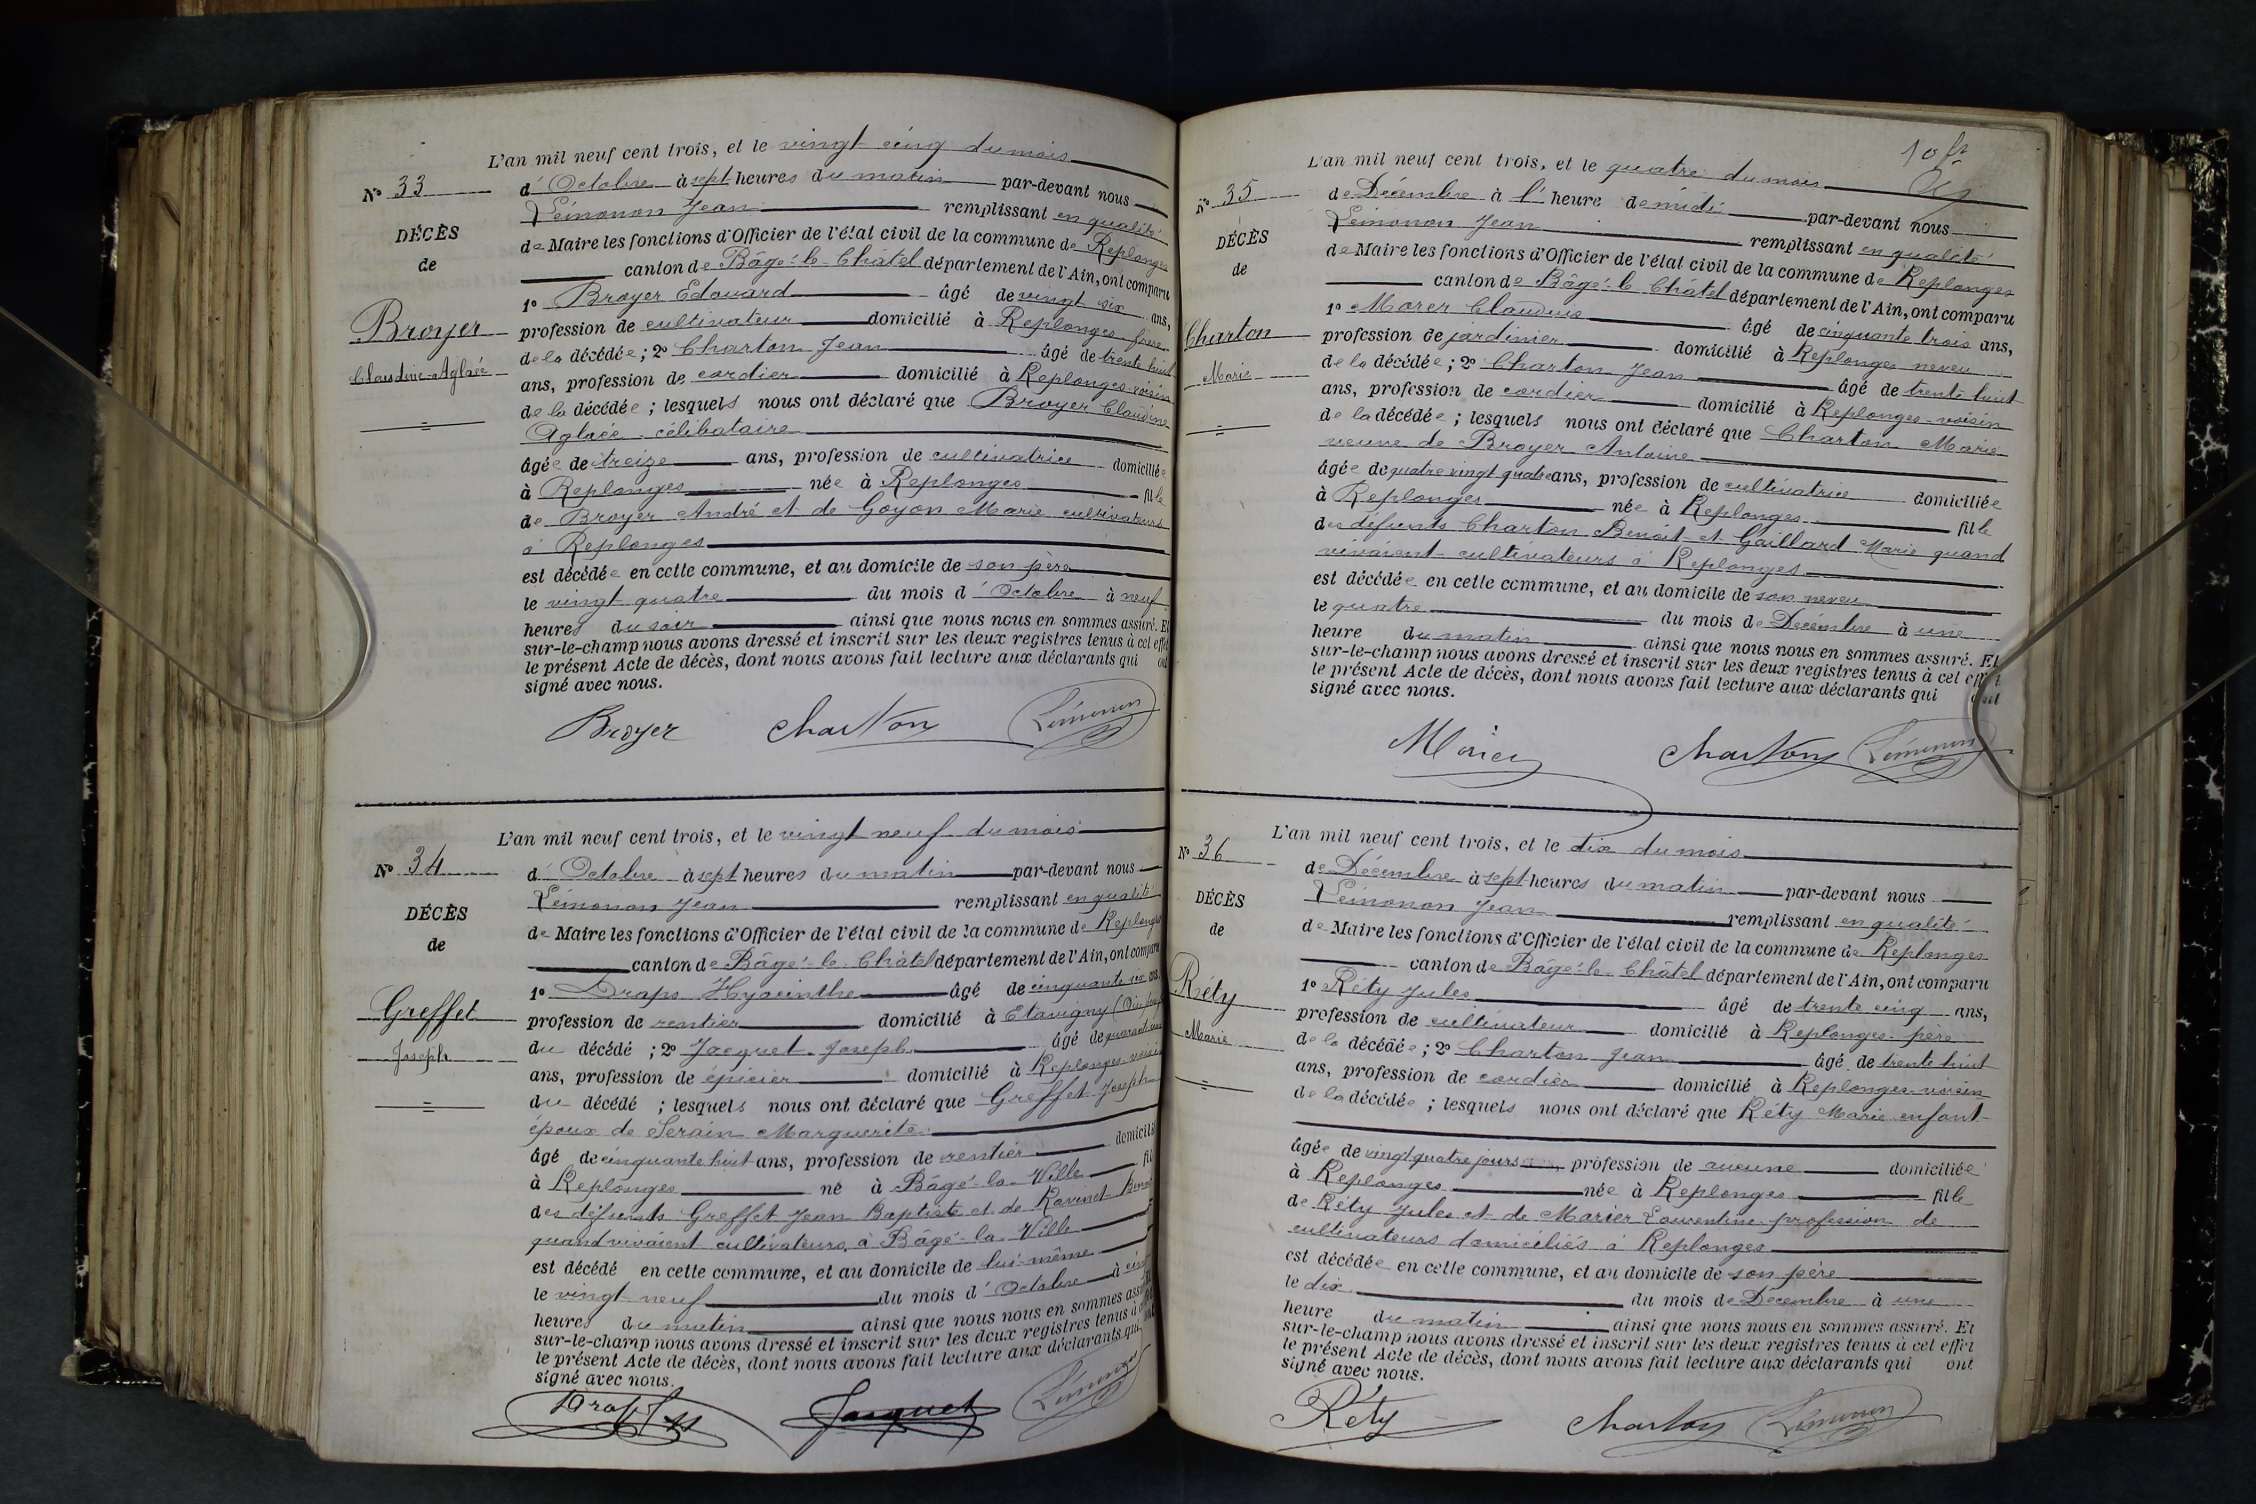 L'an mil neuf cent trois, et le vingt cinq du mois
N° 33
d'Octobre à sept heures du matin par-devant nous
Léinonon Jean remplissant en qualité
DÉCÈS
de Maire les fonctions d'Officier de l'état civil de la commune de Replonges
de
canton de Bâgé-le-Châtel département de l'Ain, ont comparu
1° Broyer Edouard âgé de vingt six ans,
Broyer
profession de cultivateur domicilié à Replonges frère
de la décédée; 2° Charton Jean âgé de trente huit
Claudine Aglaée
ans, profession de cordier domicilié à Replonges voisin
de la décédée; lesquels nous ont déclaré que Broyer Claudine
Aglaée célibataire
âgée de treize ans, profession de cultivatrice domiciliée
à Replonges née à Replonges fille
de Broyer André et de Goyon Marie cultivateurs
à Replonges
est décédée en cette commune, et au domicile de son père
le vingt quatre du mois d'Octobre à neuf
heures du soir ainsi que nous nous en sommes assuré. Et
sur-le-champ nous avons dressé et inscrit sur les deux registres tenus à cet effet
le présent Acte de décès, dont nous avons fait lecture aux déclarants qui ont
signé avec nous.
Broyer Charton
L'an mil neuf cent trois, et le vingt neuf du mois
N° 34
d'Octobre à sept heures du matin par-devant nous
Léinonon Jean remplissant en qualité
DÉCÈS
de Maire les fonctions d'Officier de l'état civil de la commune de Replonges
de
canton de Bâgé-le-Châtel département de l'Ain, ont comparu
1° Draps Hyacinthe âgé de cinquante six ans
Greffet
profession de rentier domicilié à Etavigny
Joseph
du décédé; 2° Jacquet Joseph âgé de
ans, profession de épicier domicilié à Replonges voisin
du décédé; lesquels nous ont déclaré que Greffet Joseph
époux de Serain Marguerite
âgé de cinquante huit ans, profession de rentier domicilié
à Replonges né à Bâgé-la-Ville fil
des défunts Greffet Jean Baptiste et de Ravinet
quand vivaient cultivateurs à Bâgé-la-Ville
est décédé en cette commune, et au domicile de lui-même
le vingt neuf du mois d'Octobre à cinq
heures du matin ainsi que nous nous en sommes assuré
sur-le-champ nous avons dressé et inscrit sur les deux registres tenus à
le présent Acte de décès, dont nous avons fait lecture aux déclarants qui ont
signé avec nous.
Draps Jacquet
L'an mil neuf cent trois, et le quatre du mois
N° 35
de Décembre à l'heure de midi par-devant nous
Léinonon Jean remplissant en qualité
DÉCÈS
de Maire les fonctions d'Officier de l'état civil de la commune de Replonges
de
canton de Bâgé-le-Châtel département de l'Ain, ont comparu
1° Morer Claudius âgé de cinquante trois ans,
Charton
profession de jardinier domicilié à Replonges neveu
de la décédée; 2° Charton Jean âgé de trente huit
Marie
ans, profession de cordier domicilié à Replonges voisin
de la décédée; lesquels nous ont déclaré que Charton Marie
veuve de Broyer Antoine
âgée de quatre vingt quatre ans, profession de cultivatrice domiciliée
à Replonges née à Replonges fille
des défunts Charton Benoit et Gaillard Marie quand
vivaient cultivateurs à Replonges
est décédée en cette commune, et au domicile de son neveu
le quatre du mois de Décembre à une
heure du matin ainsi que nous nous en sommes assuré. Et
sur-le-champ nous avons dressé et inscrit sur les deux registres tenus à cet effet
le présent Acte de décès, dont nous avons fait lecture aux déclarants qui ont
signé avec nous.
Charton
L'an mil neuf cent trois, et le dix du mois
N° 36
de Décembre à sept heures du matin par-devant nous
Léinonon Jean remplissant en qualité
DÉCÈS
de Maire les fonctions d'Officier de l'état civil de la commune de Replonges
de
canton de Bâgé-le-Châtel département de l'Ain, ont comparu
1° Réty Jules âgé de trente cinq ans,
Réty
profession de cultivateur domicilié à Replonges père
de la décédée; 2° Charton Jean âgé de trente huit
Marie
ans, profession de cordier domicilié à Replonges voisin
de la décédée; lesquels nous ont déclaré que Réty Marie enfant
âgée de vingt quatre jours profession de aucune domiciliée
à Replonges née à Replonges fille
de Réty Jules et de Marier Laurentine profession de
cultivateurs domiciliés à Replonges
est décédée en cette commune, et au domicile de son père
le dix du mois de Décembre à une
heure du matin ainsi que nous nous en sommes assuré. Et
sur-le-champ nous avons dressé et inscrit sur les deux registres tenus à cet effet
le présent Acte de décès, dont nous avons fait lecture aux déclarants qui ont
signé avec nous.
Réty Charton